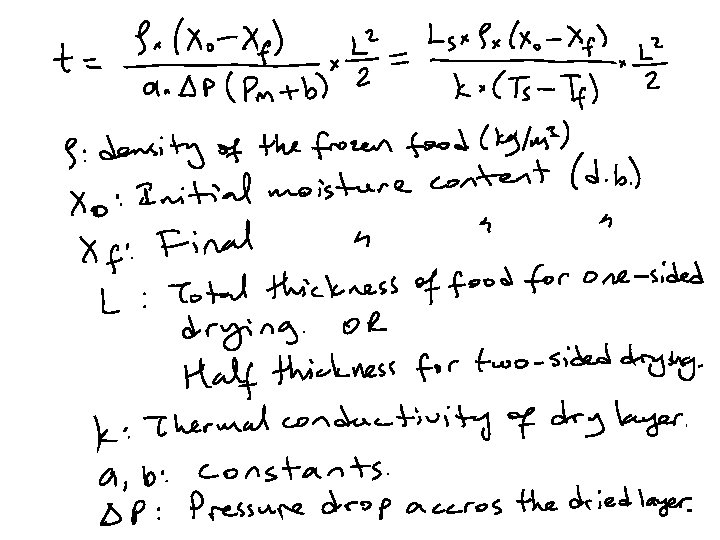 t = ρ × (X₀ − X_f) / a · ΔP (P_m + b) × L²/2 = L_s × ρ × (x₀ − X_f) / k × (T_s − T_f) × L²/2
ρ: density of the frozen food (kg/m³)
X₀: Initial moisture content (d.b.)
X_f: Final 〃 〃 〃
L : Total thickness of food for one-sided
drying. OR
Half thickness for two-sided drying.
k: Thermal conductivity of dry layer.
a, b: constants.
ΔP: Pressure drop accros the dried layer.